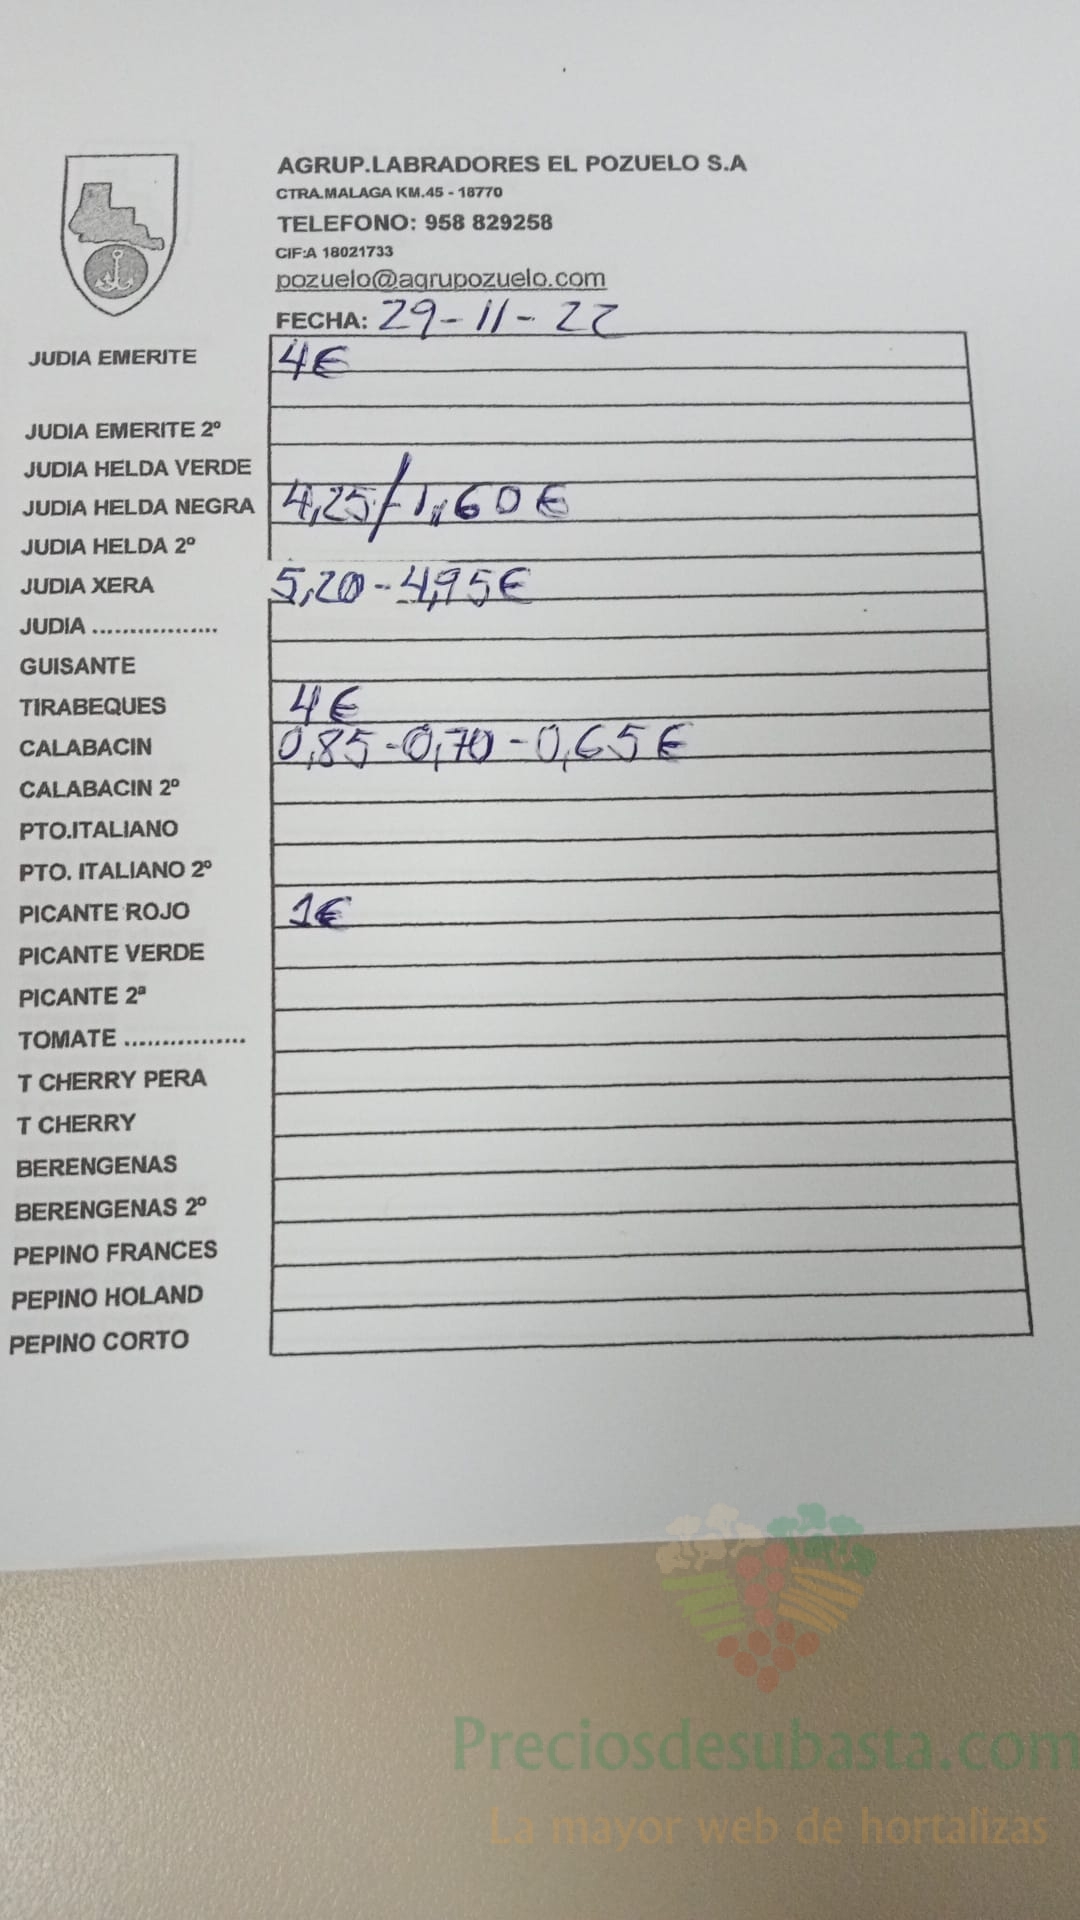 AGRUP.LABRADORES EL POZUELO S.A
CTRA.MALAGA KM.45 - 18770
TELEFONO: 958 829258
CIF:A 18021733
pozuelo@agrupozuelo.com
FECHA: 29-11-22
JUDIA EMERITE 4€
JUDIA EMERITE 2º
JUDIA HELDA VERDE
JUDIA HELDA NEGRA 4,25/1,60€
JUDIA HELDA 2º
JUDIA XERA 5,20-4,95€
JUDIA .................
GUISANTE
TIRABEQUES 4€
CALABACIN 0,85-0,70-0,65€
CALABACIN 2º
PTO.ITALIANO
PTO. ITALIANO 2º
PICANTE ROJO 1€
PICANTE VERDE
PICANTE 2ª
TOMATE ................
T CHERRY PERA
T CHERRY
BERENGENAS
BERENGENAS 2º
PEPINO FRANCES
PEPINO HOLAND
PEPINO CORTO
Preciosdesubasta.com
La mayor web de hortalizas